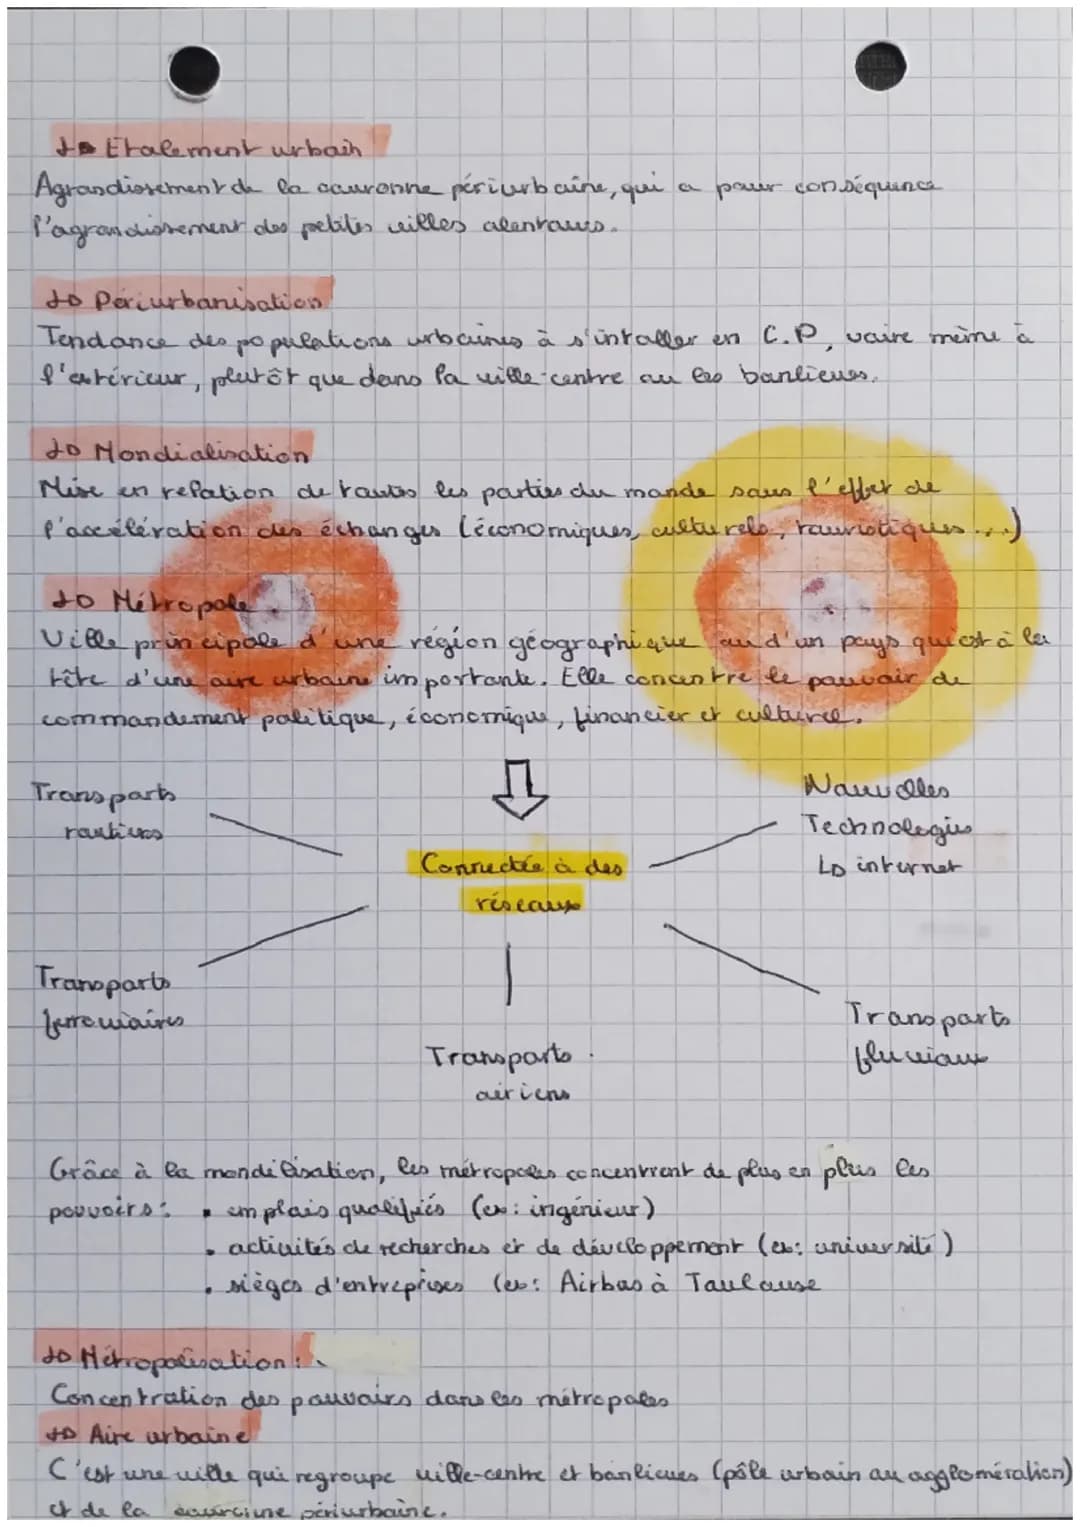 ↳ Etalement urbain
Agrandissement de la couronne périurbaine, qui a pour conséquence
l'agrandissement des petites villes alentours.
↳ Périurbanisation
Tendance des populations urbaines à s'intaller en C.P, voire même à
l'extérieur, plutôt que dans la ville-centre ou les banlieues.
↳ Mondialisation
Mise en relation de toutes les parties du monde sous l'effet de
l'accélération des échanges (économiques, culturels, touristiques...)
↳ Métropole
Ville principale d'une région géographique ou d'un pays qui est à la
tête d'une aire urbaine importante. Elle concentre le pouvoir de
commandement politique, économique, financier et culturel.
Transports
routiers
Nouvelles
Technologies
↳ internet
Connectée à des
réseaux
Transports
ferroviaires
Transports
fluviaux
Transports
aériens
Grâce à la mondilisation, les métropoles concentrent de plus en plus les
pouvoirs: • emplois qualifiés (ex: ingénieur)
• activités de recherches et de développement (ex: université)
• sièges d'entreprises (ex: Airbus à Toulouse
↳ Métropolisation:
Concentration des pouvoirs dans les métropoles
↳ Aire urbaine
C'est une ville qui regroupe ville-centre et banlieues (pôle urbain ou agglomération)
et de la périurbaine.